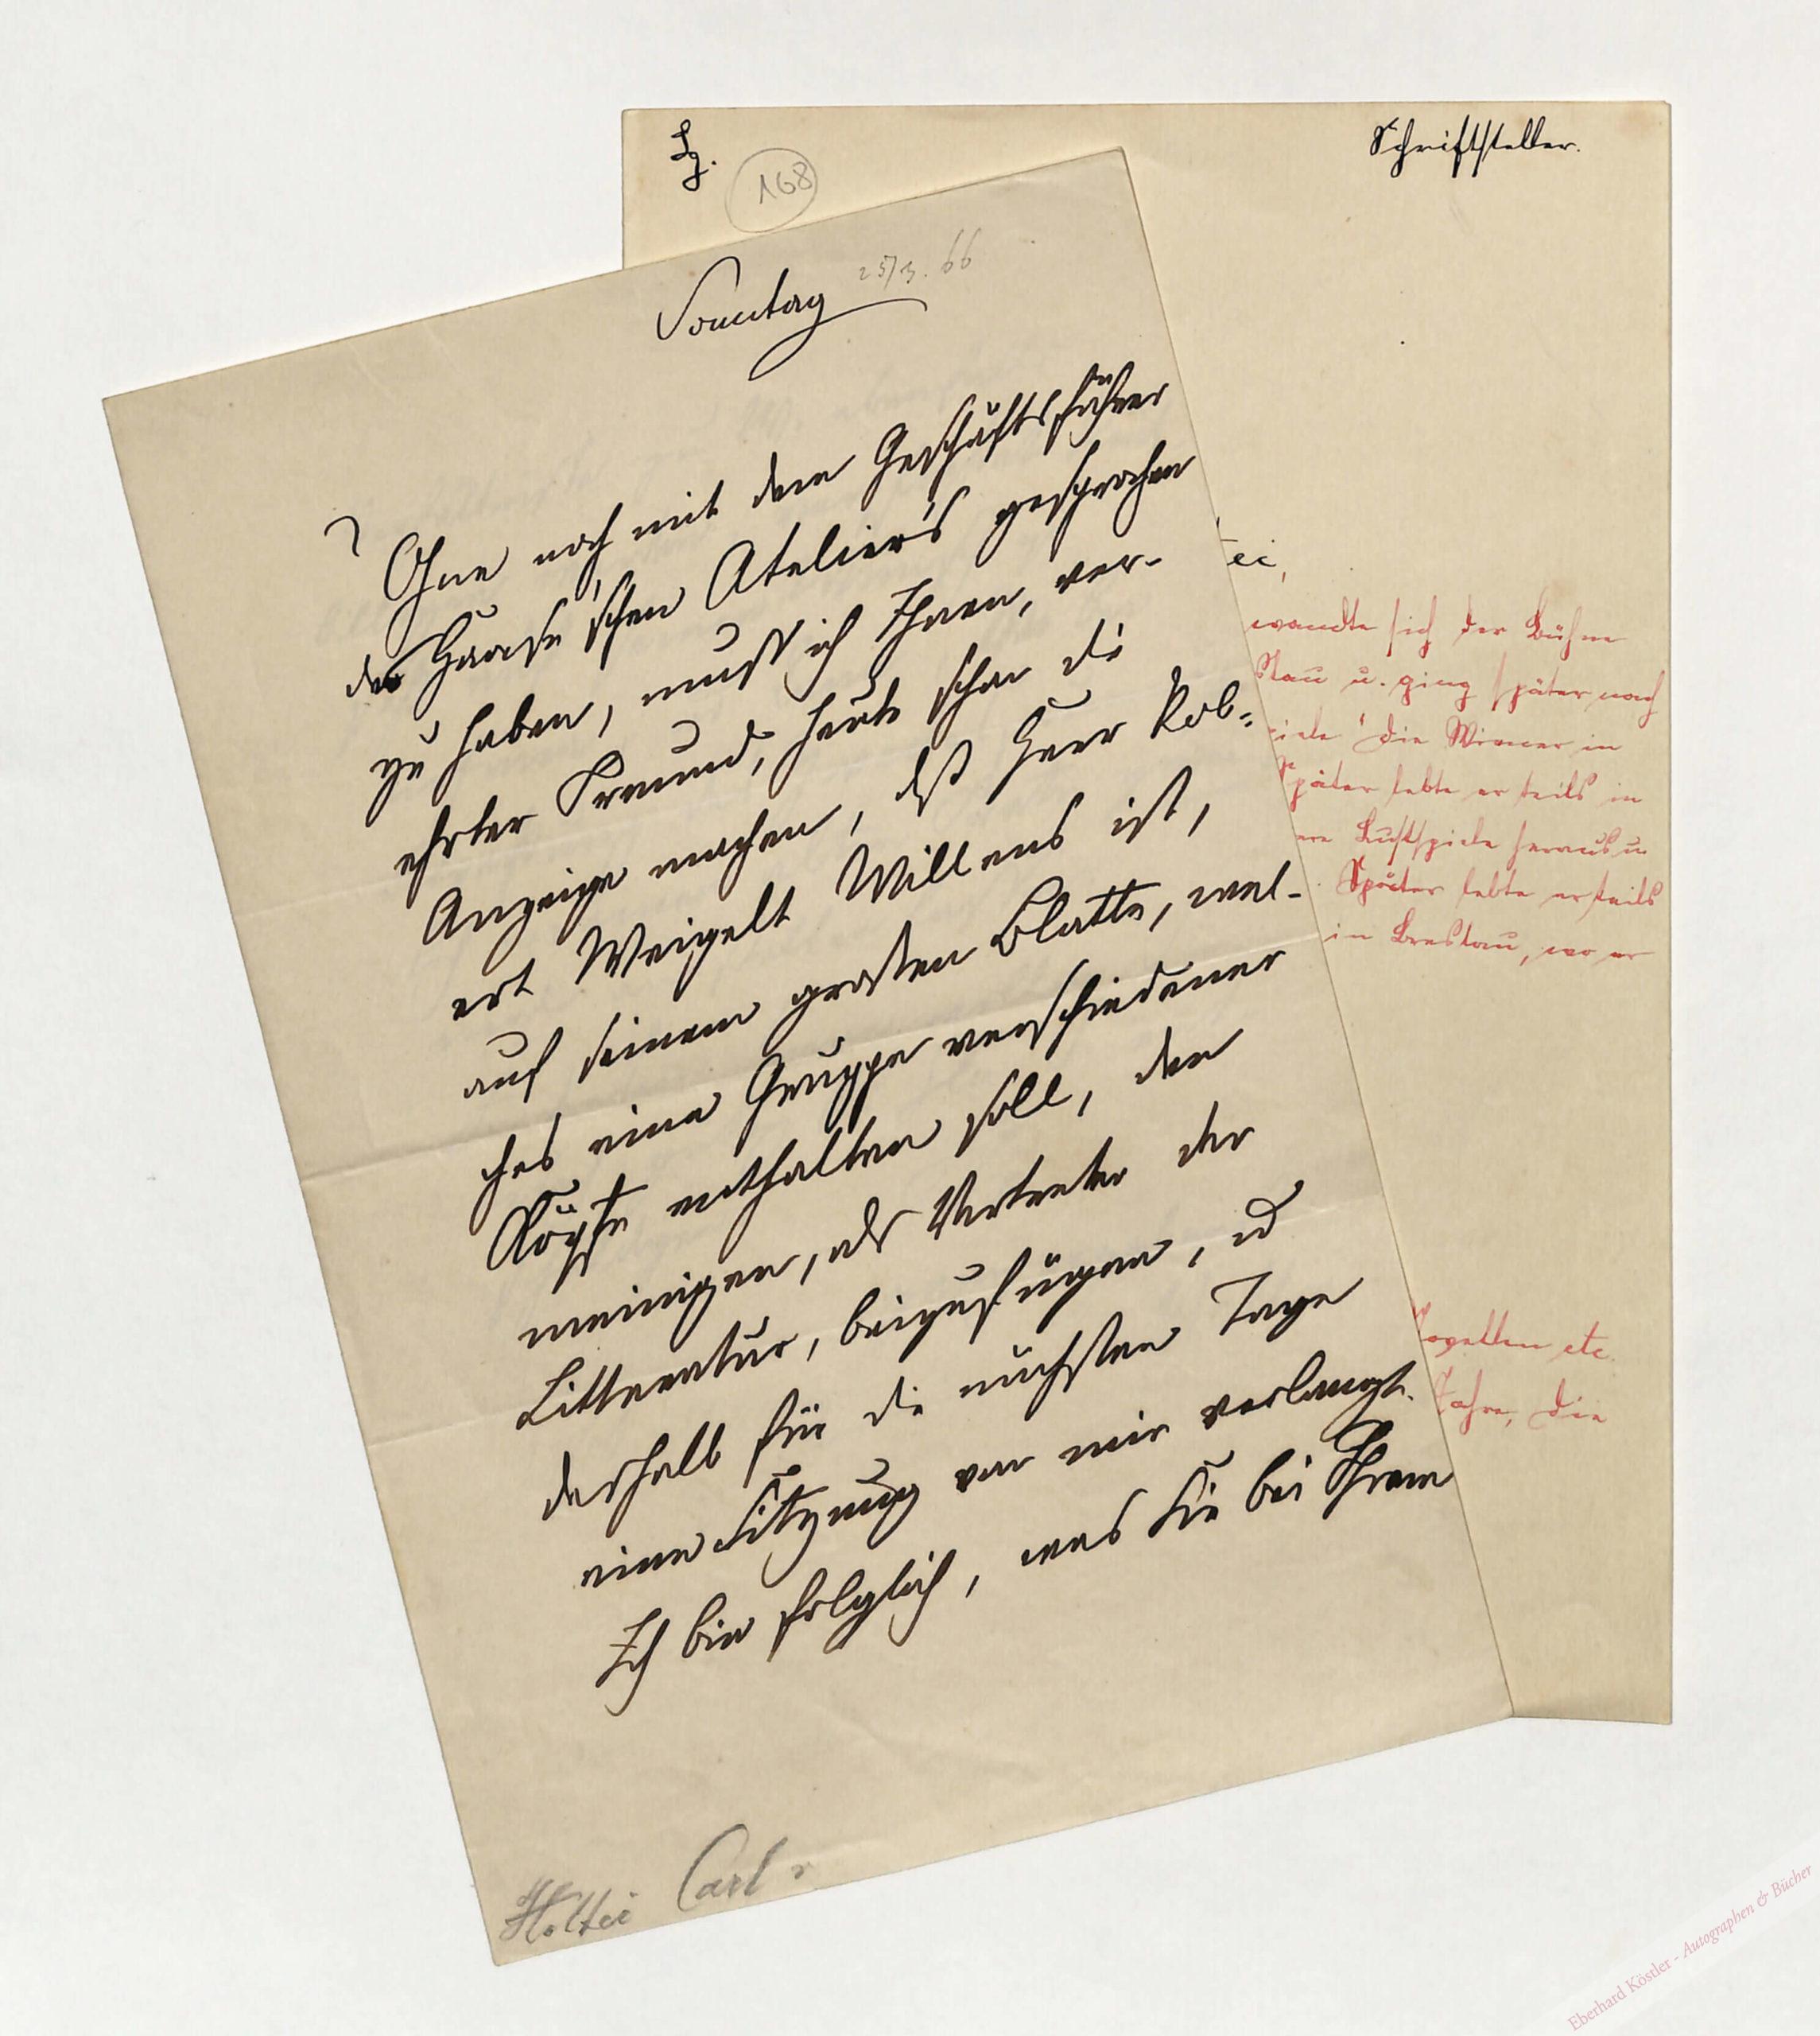 Lz.
168
Schriftsteller.
Sonntag 25/3. 66
Ohne noch mit dem Geschäftsführer
des Haase'schen Atelier's gesprochen
zu haben, muß ich Ihnen, ver-
ehrter Freund, heute schon die
Anzeige machen, dß Herr Rob-
ert Weigelt Willens ist,
auf seinem großen Blatte, wel-
ches eine Gruppe verschiedener
Köpfe enthalten soll, den
meinigen, als Vertreter der
Litteratur, beizufügen, ud
deshalb für die nächsten Tage
eine Sitzung von mir verlangt.
Ich bin folglich, was Sie bei Ihrem
Holtei Carl v
tei,
wandte sich der Bühne
slau u. ging später nach
iele "Die Wiener in
Später lebte er teils in
ere Lustspiele heraus u.
Später lebte er teils
in Breslau, wo er
Novellen etc.
Jahre, die
Eberhard Köstler - Autographen & Bücher